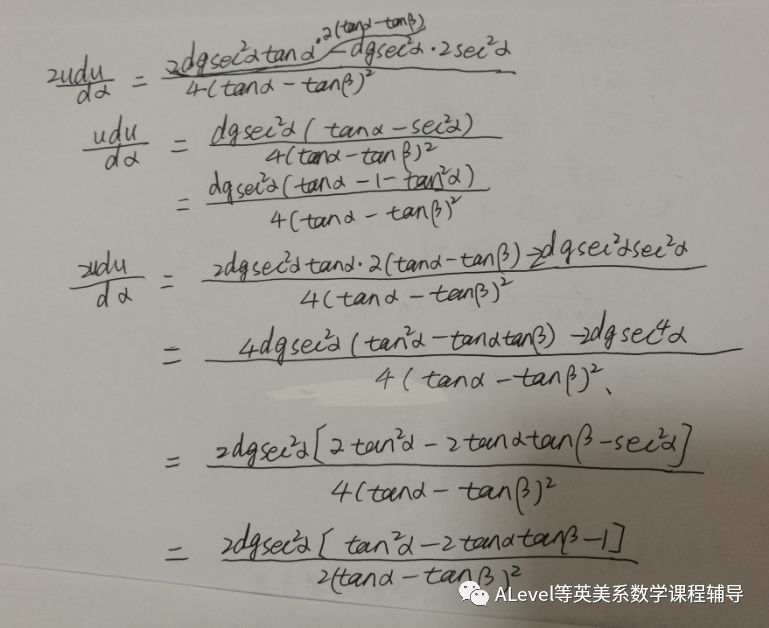 2udu/dα = 2dgsec²α tanα ·2(tanα-tanβ) - dgsec²α · 2sec²α / 4(tanα - tanβ)²
udu/dα = dgsec²α ( tanα - sec²α) / 4(tanα - tanβ)²
= dgsec²α (tanα - 1 - tan²α) / 4(tanα - tanβ)²
2udu/dα = 2dgsec²α tanα · 2(tanα-tanβ) - 2dgsec²α sec²α / 4(tanα - tanβ)²
= 4dgsec²α (tan²α - tanα tanβ) - 2dgsec⁴α / 4 ( tanα - tanβ)²、
= 2dgsec²α [2 tan²α - 2 tanα tanβ - sec²α] / 4(tanα - tanβ)²
= 2dgsec²α [ tan²α - 2 tanα tanβ - 1] / 2(tanα - tanβ)²
ALevel等英美系数学课程辅导